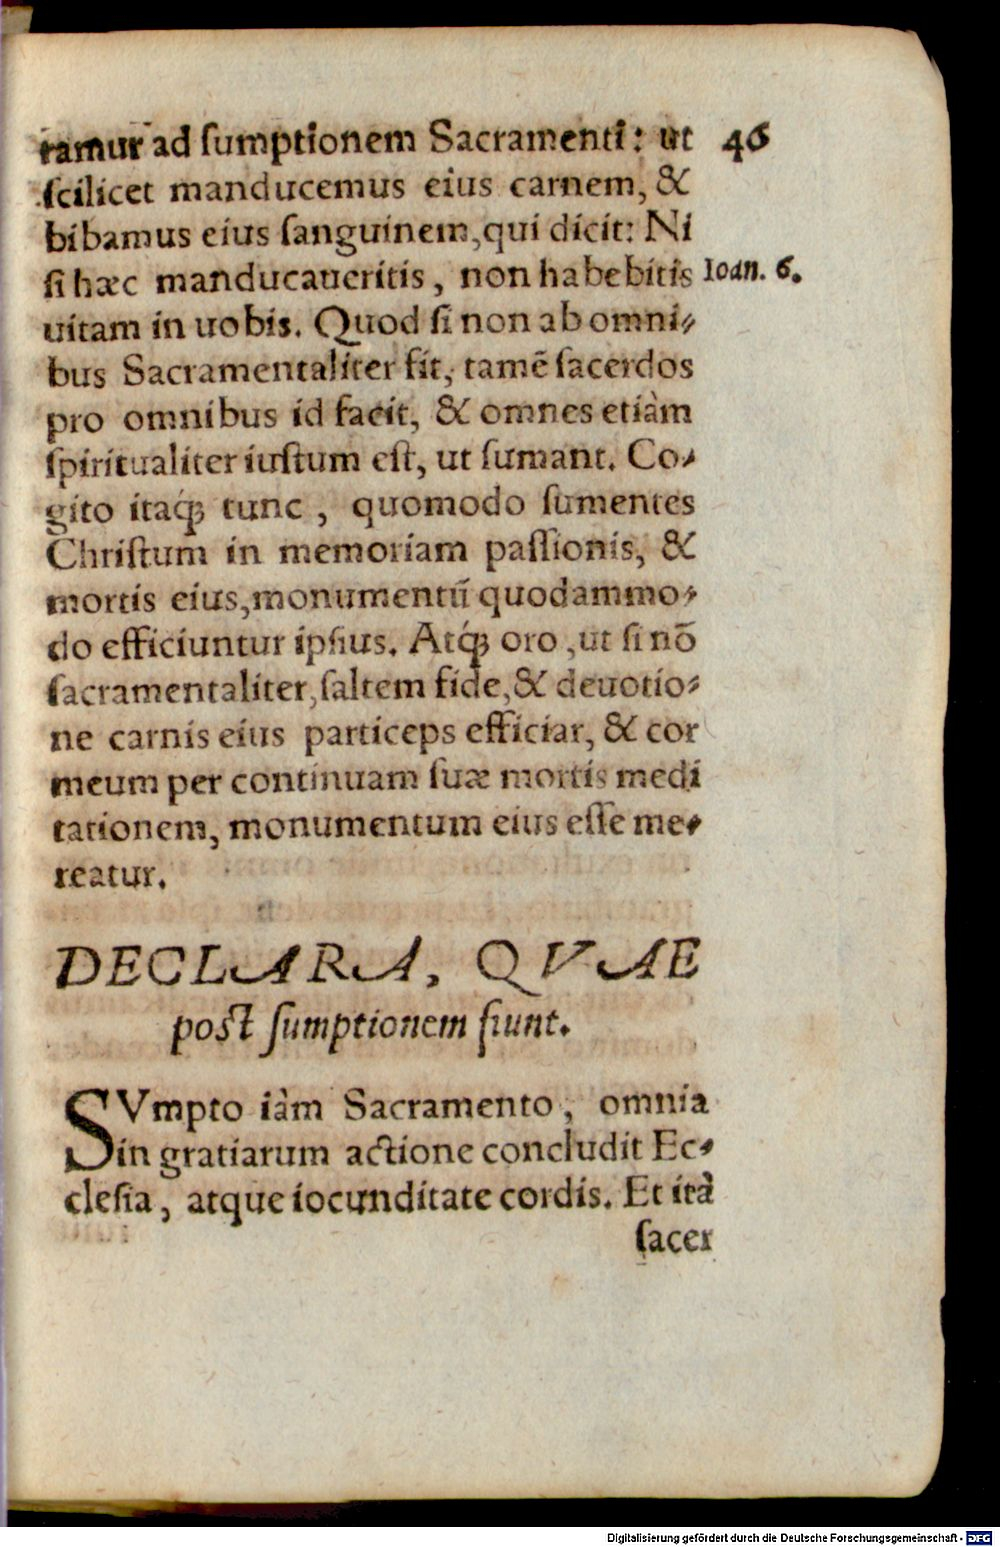 ramur ad sumptionem Sacramenti: ut 46
scilicet manducemus eius carnem, &
bibamus eius sanguinem, qui dicit: Ni
si hæc manducaueritis, non habebitis Ioan. 6.
uitam in uobis. Quod si non ab omni⸗
bus Sacramentaliter fit, tamẽ sacerdos
pro omnibus id facit, & omnes etiàm
spiritualiter iustum est, ut sumant. Co⸗
gito itaq́; tunc, quomodo sumentes
Christum in memoriam passionis, &
mortis eius, monumentũ quodammo⸗
do efficiuntur ipsius. Atq́; oro, ut si nõ
sacramentaliter, saltem fide, & deuotio⸗
ne carnis eius particeps efficiar, & cor
meum per continuam suæ mortis medi
tationem, monumentum eius esse me⸗
reatur.
DECLARA, QVAE
post sumptionem fiunt.
SVmpto iàm Sacramento, omnia
in gratiarum actione concludit Ec⸗
clesia, atque iocunditate cordis. Et ità
sacer
Digitalisierung gefördert durch die Deutsche Forschungsgemeinschaft - DFG